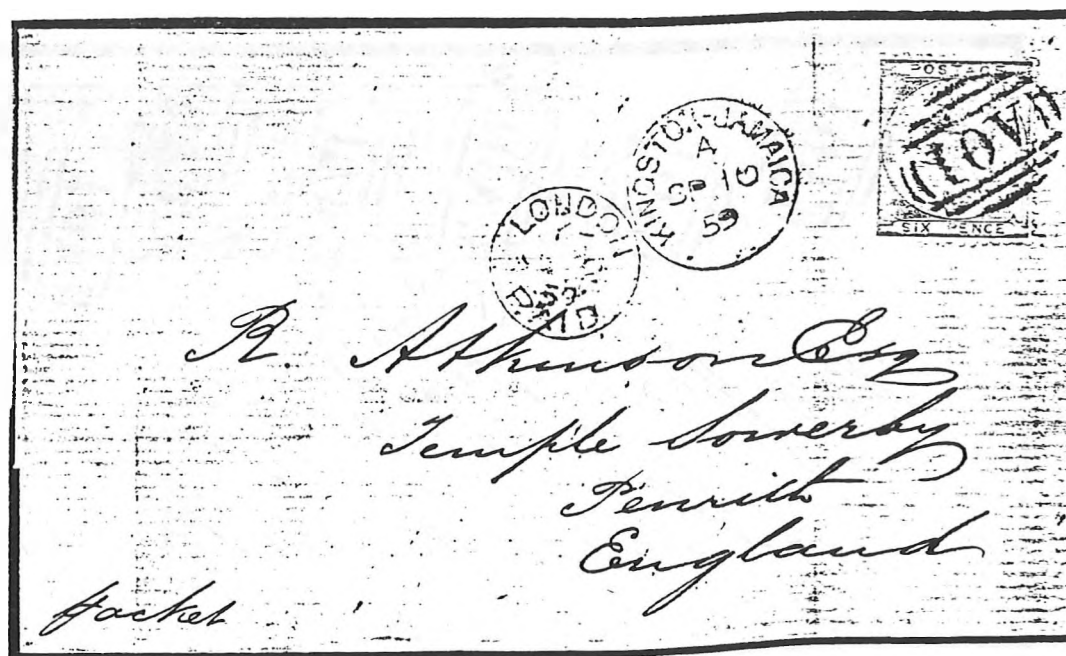 POSTAGE
A01
SIX PENCE
KINGSTON-JAMAICA
A
SP 10
59
LONDON
PAID
R. Atkinson Esq
Temple Sowerby
Penrith
England
packet